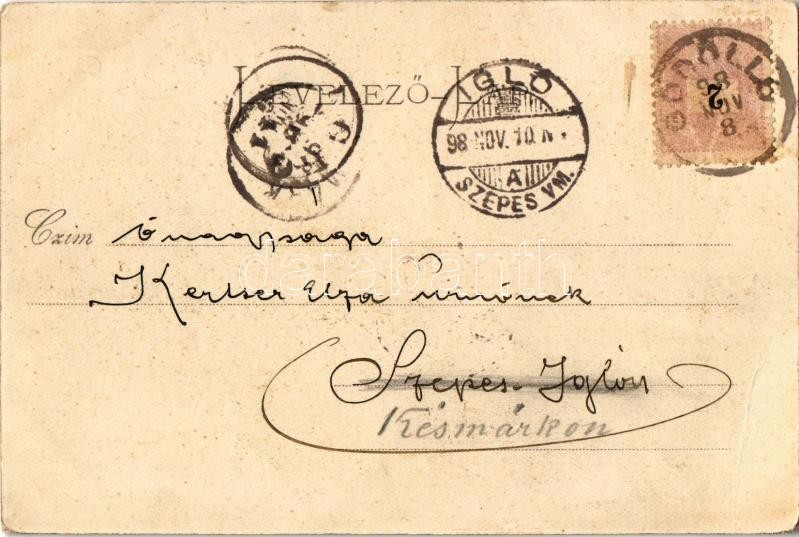 LEVELEZŐ-L
IGLÓ
98 NOV. 10. N
A
SZEPES VM.
GÖDÖLLŐ
98
NOV
8
2
Czim ő nagysaga
Kertser Elza urnőnek
Szepes-Iglón
Késmárkon
darabanth